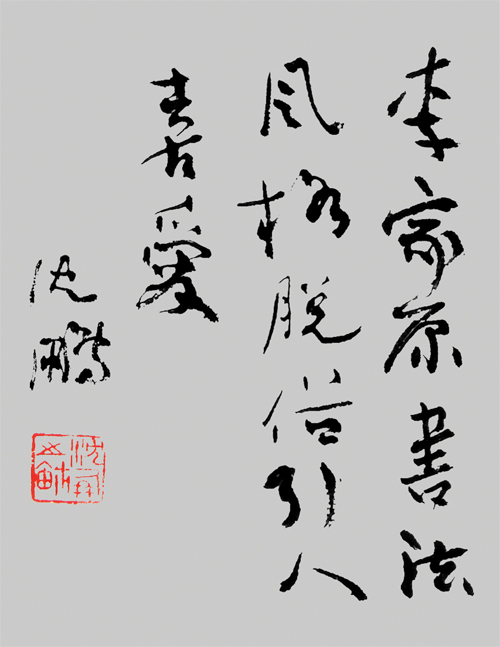 李家原書法
风格脱俗引人
喜愛
沈鹏